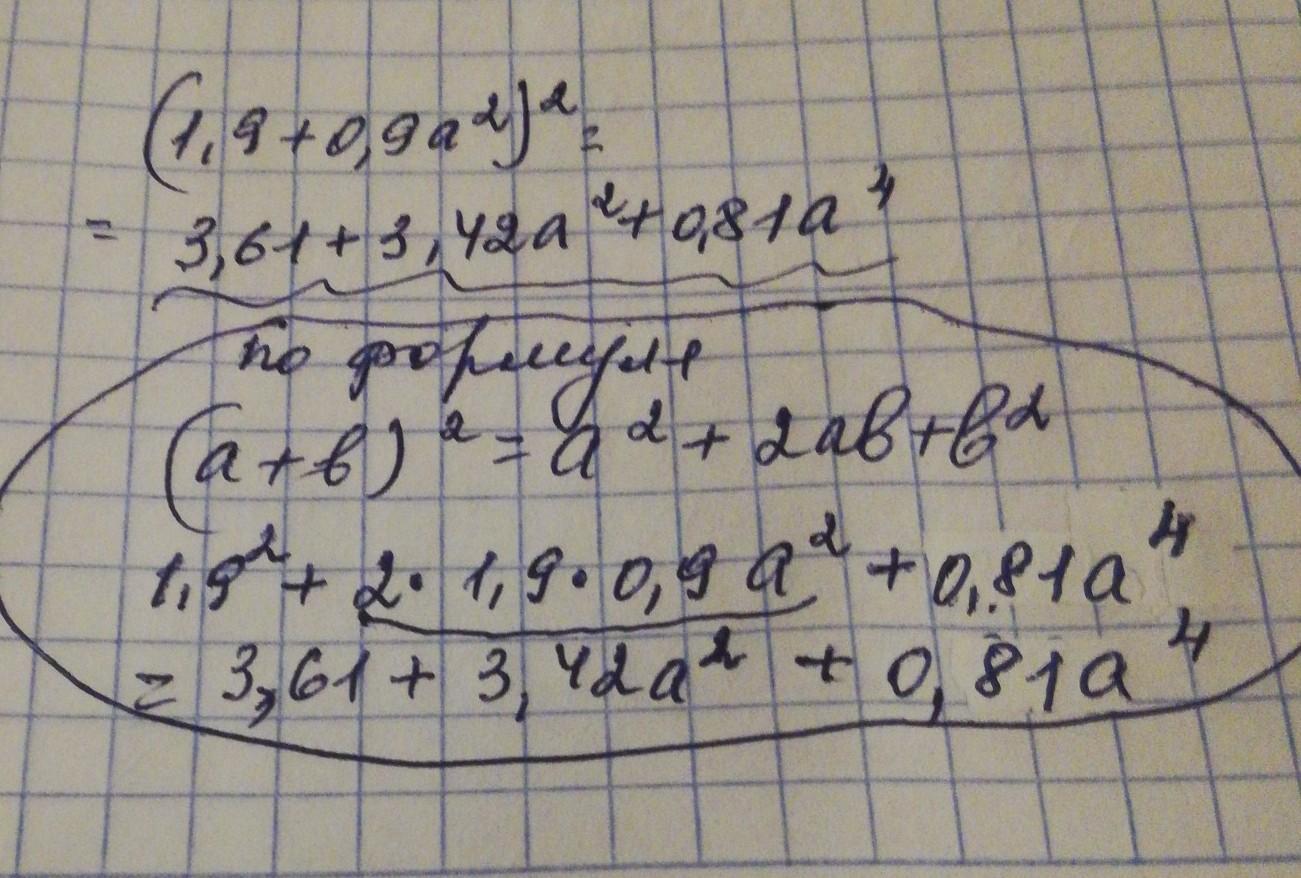 (1,9+0,9a²)²=
= 3,61+3,42a²+0,81a⁴
по формуле
(a+b)²=a²+2ab+b²
1,9²+2·1,9·0,9a²+0,81a⁴
= 3,61+3,42a²+0,81a⁴